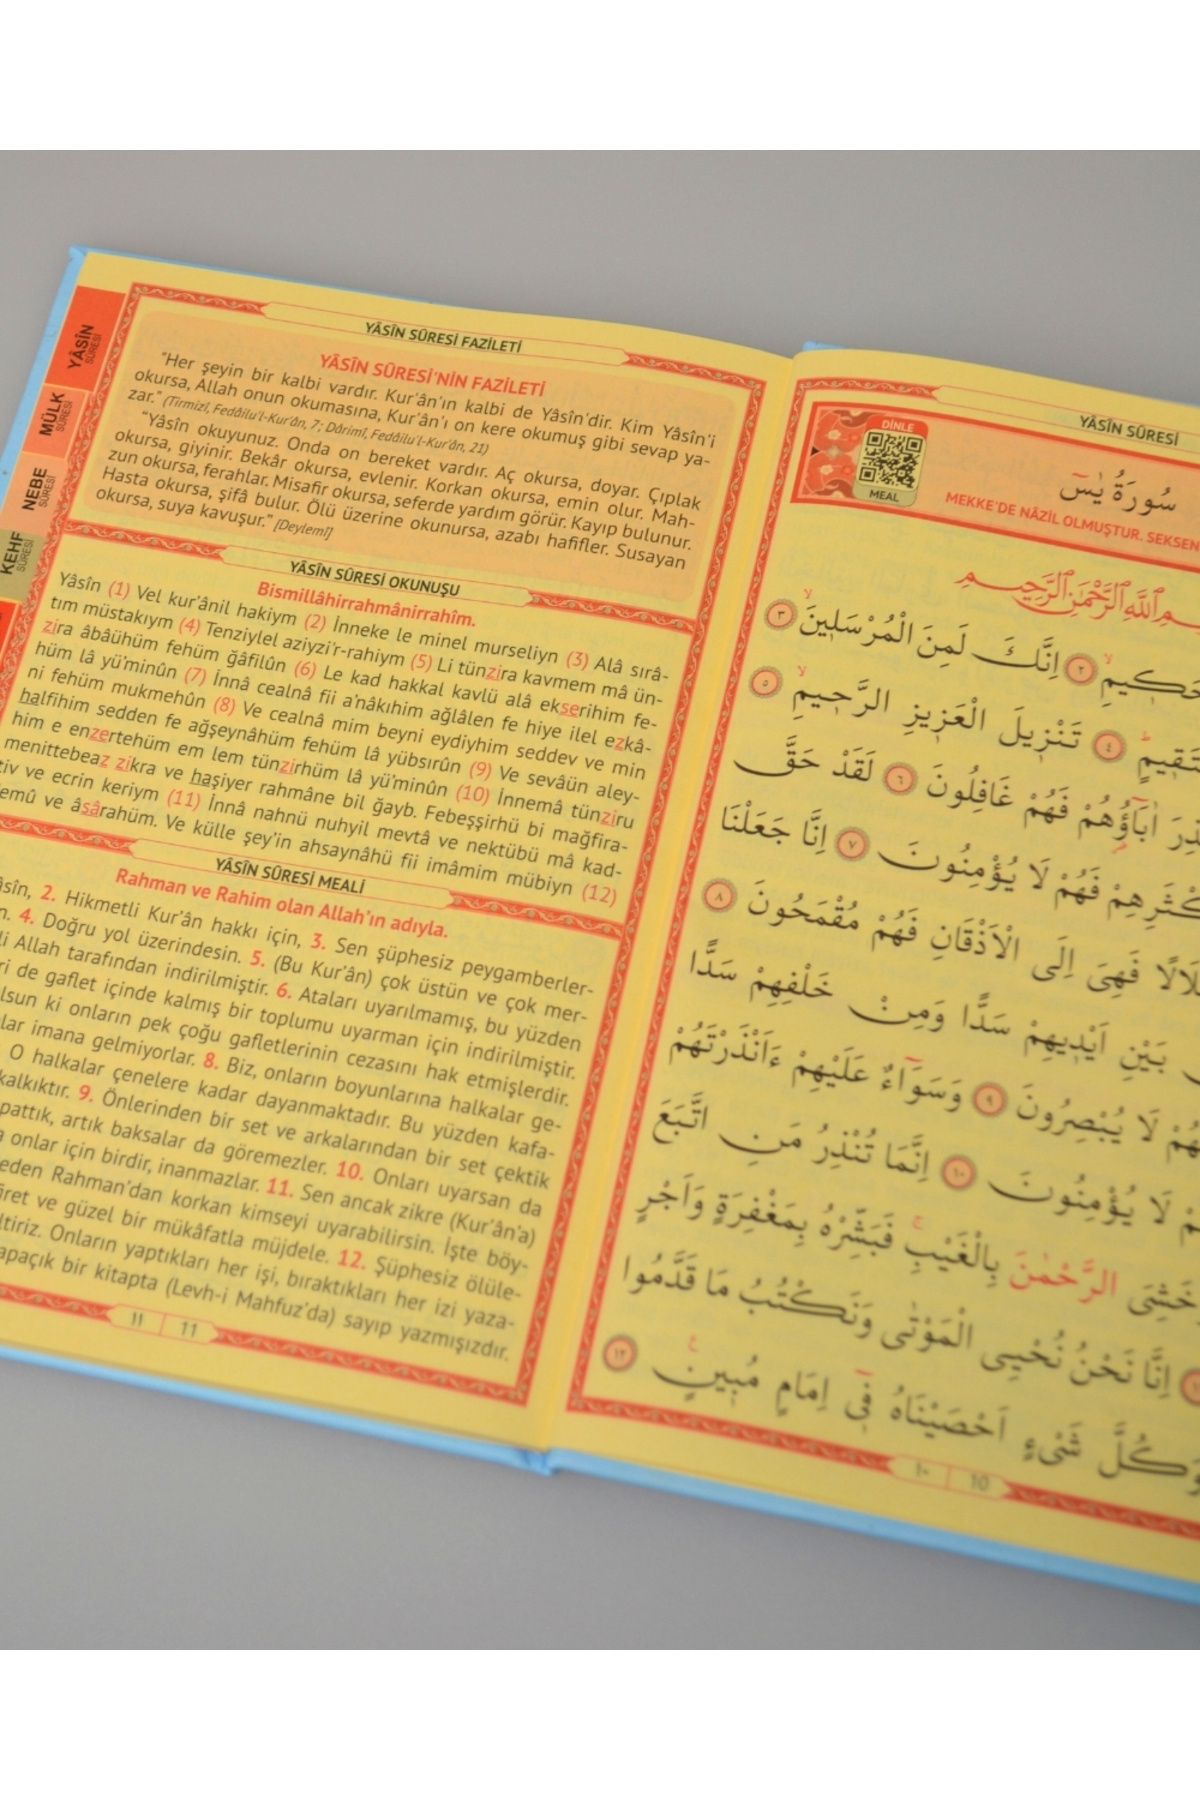 YÂSÎN SÛRESİ
MÜLK SÛRESİ
NEBE SÛRESİ
KEHF SÛRESİ
YÂSÎN SÛRESİ FAZİLETİ
YÂSÎN SÛRESİ'NİN FAZİLETİ
"Her şeyin bir kalbi vardır. Kur'ân'ın kalbi de Yâsîn'dir. Kim Yâsîn'i
okursa, Allah onun okumasına, Kur'ân'ı on kere okumuş gibi sevap ya-
zar." (Tirmizî, Fedâilu'l-Kur'ân, 7; Dârimî, Fedâilu'l-Kur'ân, 21)
"Yâsîn okuyunuz. Onda on bereket vardır. Aç okursa, doyar. Çıplak
okursa, giyinir. Bekâr okursa, evlenir. Korkan okursa, emin olur. Mah-
zun okursa, ferahlar. Misafir okursa, seferde yardım görür. Kayıp bulunur.
Hasta okursa, şifâ bulur. Ölü üzerine okunursa, azabı hafifler. Susayan
okursa, suya kavuşur." [Deylemî]
YÂSÎN SÛRESİ OKUNUŞU
Bismillâhirrahmânirrahîm.
Yâsîn (1) Vel kur'ânil hakiym (2) İnneke le minel murseliyn (3) Alâ sırâ-
tım müstakıym (4) Tenziylel aziyzi'r-rahiym (5) Li tünzira kavmem mâ ün-
zira âbâühüm fehüm ğâfilûn (6) Le kad hakkal kavlü alâ ekserihim fe-
hüm lâ yü'minûn (7) İnnâ cealnâ fii a'nâkıhim ağlâlen fe hiye ilel ezkâ-
ni fehüm mukmehûn (8) Ve cealnâ mim beyni eydiyhim seddev ve min
halfihim sedden fe ağşeynâhüm fehüm lâ yübsırûn (9) Ve sevâün aley-
him e enzertehüm em lem tünzirhüm lâ yü'minûn (10) İnnemâ tünziru
menittebeaz zikra ve haşiyer rahmâne bil ğayb. Febeşşirhü bi mağfira-
tiv ve ecrin keriym (11) İnnâ nahnü nuhyil mevtâ ve nektübü mâ kad-
demû ve âsârahüm. Ve külle şey'in ahsaynâhü fii imâmim mübiyn (12)
YÂSÎN SÛRESİ MEALİ
Rahman ve Rahim olan Allah'ın adıyla.
âsîn, 2. Hikmetli Kur'ân hakkı için, 3. Sen şüphesiz peygamberler-
n. 4. Doğru yol üzerindesin. 5. (Bu Kur'ân) çok üstün ve çok mer-
li Allah tarafından indirilmiştir. 6. Ataları uyarılmamış, bu yüzden
ri de gaflet içinde kalmış bir toplumu uyarman için indirilmiştir.
lsun ki onların pek çoğu gafletlerinin cezasını hak etmişlerdir.
lar imana gelmiyorlar. 8. Biz, onların boyunlarına halkalar ge-
O halkalar çenelere kadar dayanmaktadır. Bu yüzden kafa-
kalkıktır. 9. Önlerinden bir set ve arkalarından bir set çektik
pattık, artık baksalar da göremezler. 10. Onları uyarsan da
a onlar için birdir, inanmazlar. 11. Sen ancak zikre (Kur'ân'a)
eden Rahman'dan korkan kimseyi uyarabilirsin. İşte böy-
firet ve güzel bir mükâfatla müjdele. 12. Şüphesiz ölüle-
ltiriz. Onların yaptıkları her işi, bıraktıkları her izi yaza-
apaçık bir kitapta (Levh-i Mahfuz'da) sayıp yazmışızdır.
١١ 11
YÂSÎN SÛRESİ
DİNLE
MEAL
سُورَةُ يٰسٓ
MEKKE'DE NÂZİL OLMUŞTUR. SEKSEN
ـمِ اللّٰهِ الرَّحْمٰنِ الرَّحٖيمِ
حَكٖيمِۙ ٢ اِنَّكَ لَمِنَ الْمُرْسَلٖينَۙ ٣
ـتَقٖيمٍؕ ٤ تَنْزٖيلَ الْعَزٖيزِ الرَّحٖيمِۙ ٥
ـذِرَ اٰبَٓاؤُ۬هُمْ فَهُمْ غَافِلُونَ ٦ لَقَدْ حَقَّ
ـكْثَرِهِمْ فَهُمْ لَا يُؤْمِنُونَ ٧ اِنَّا جَعَلْنَا
ـلَالًا فَهِيَ اِلَى الْاَذْقَانِ فَهُمْ مُقْمَحُونَ ٨
بَيْنِ اَيْدٖيهِمْ سَدًّا وَمِنْ خَلْفِهِمْ سَدًّا
ـهُمْ لَا يُبْصِرُونَ ٩ وَسَوَٓاءٌ عَلَيْهِمْ ءَاَنْذَرْتَهُمْ
ـمْ لَا يُؤْمِنُونَ ١٠ اِنَّمَا تُنْذِرُ مَنِ اتَّبَعَ
خَشِيَ الرَّحْمٰنَ بِالْغَيْبِۚ فَبَشِّرْهُ بِمَغْفِرَةٍ وَاَجْرٍ
اِنَّا نَحْنُ نُحْيِي الْمَوْتٰى وَنَكْتُبُ مَا قَدَّمُوا
وَكُلَّ شَيْءٍ اَحْصَيْنَاهُ فٖٓي اِمَامٍ مُبٖينٍۚ ١٢
١٠ 10